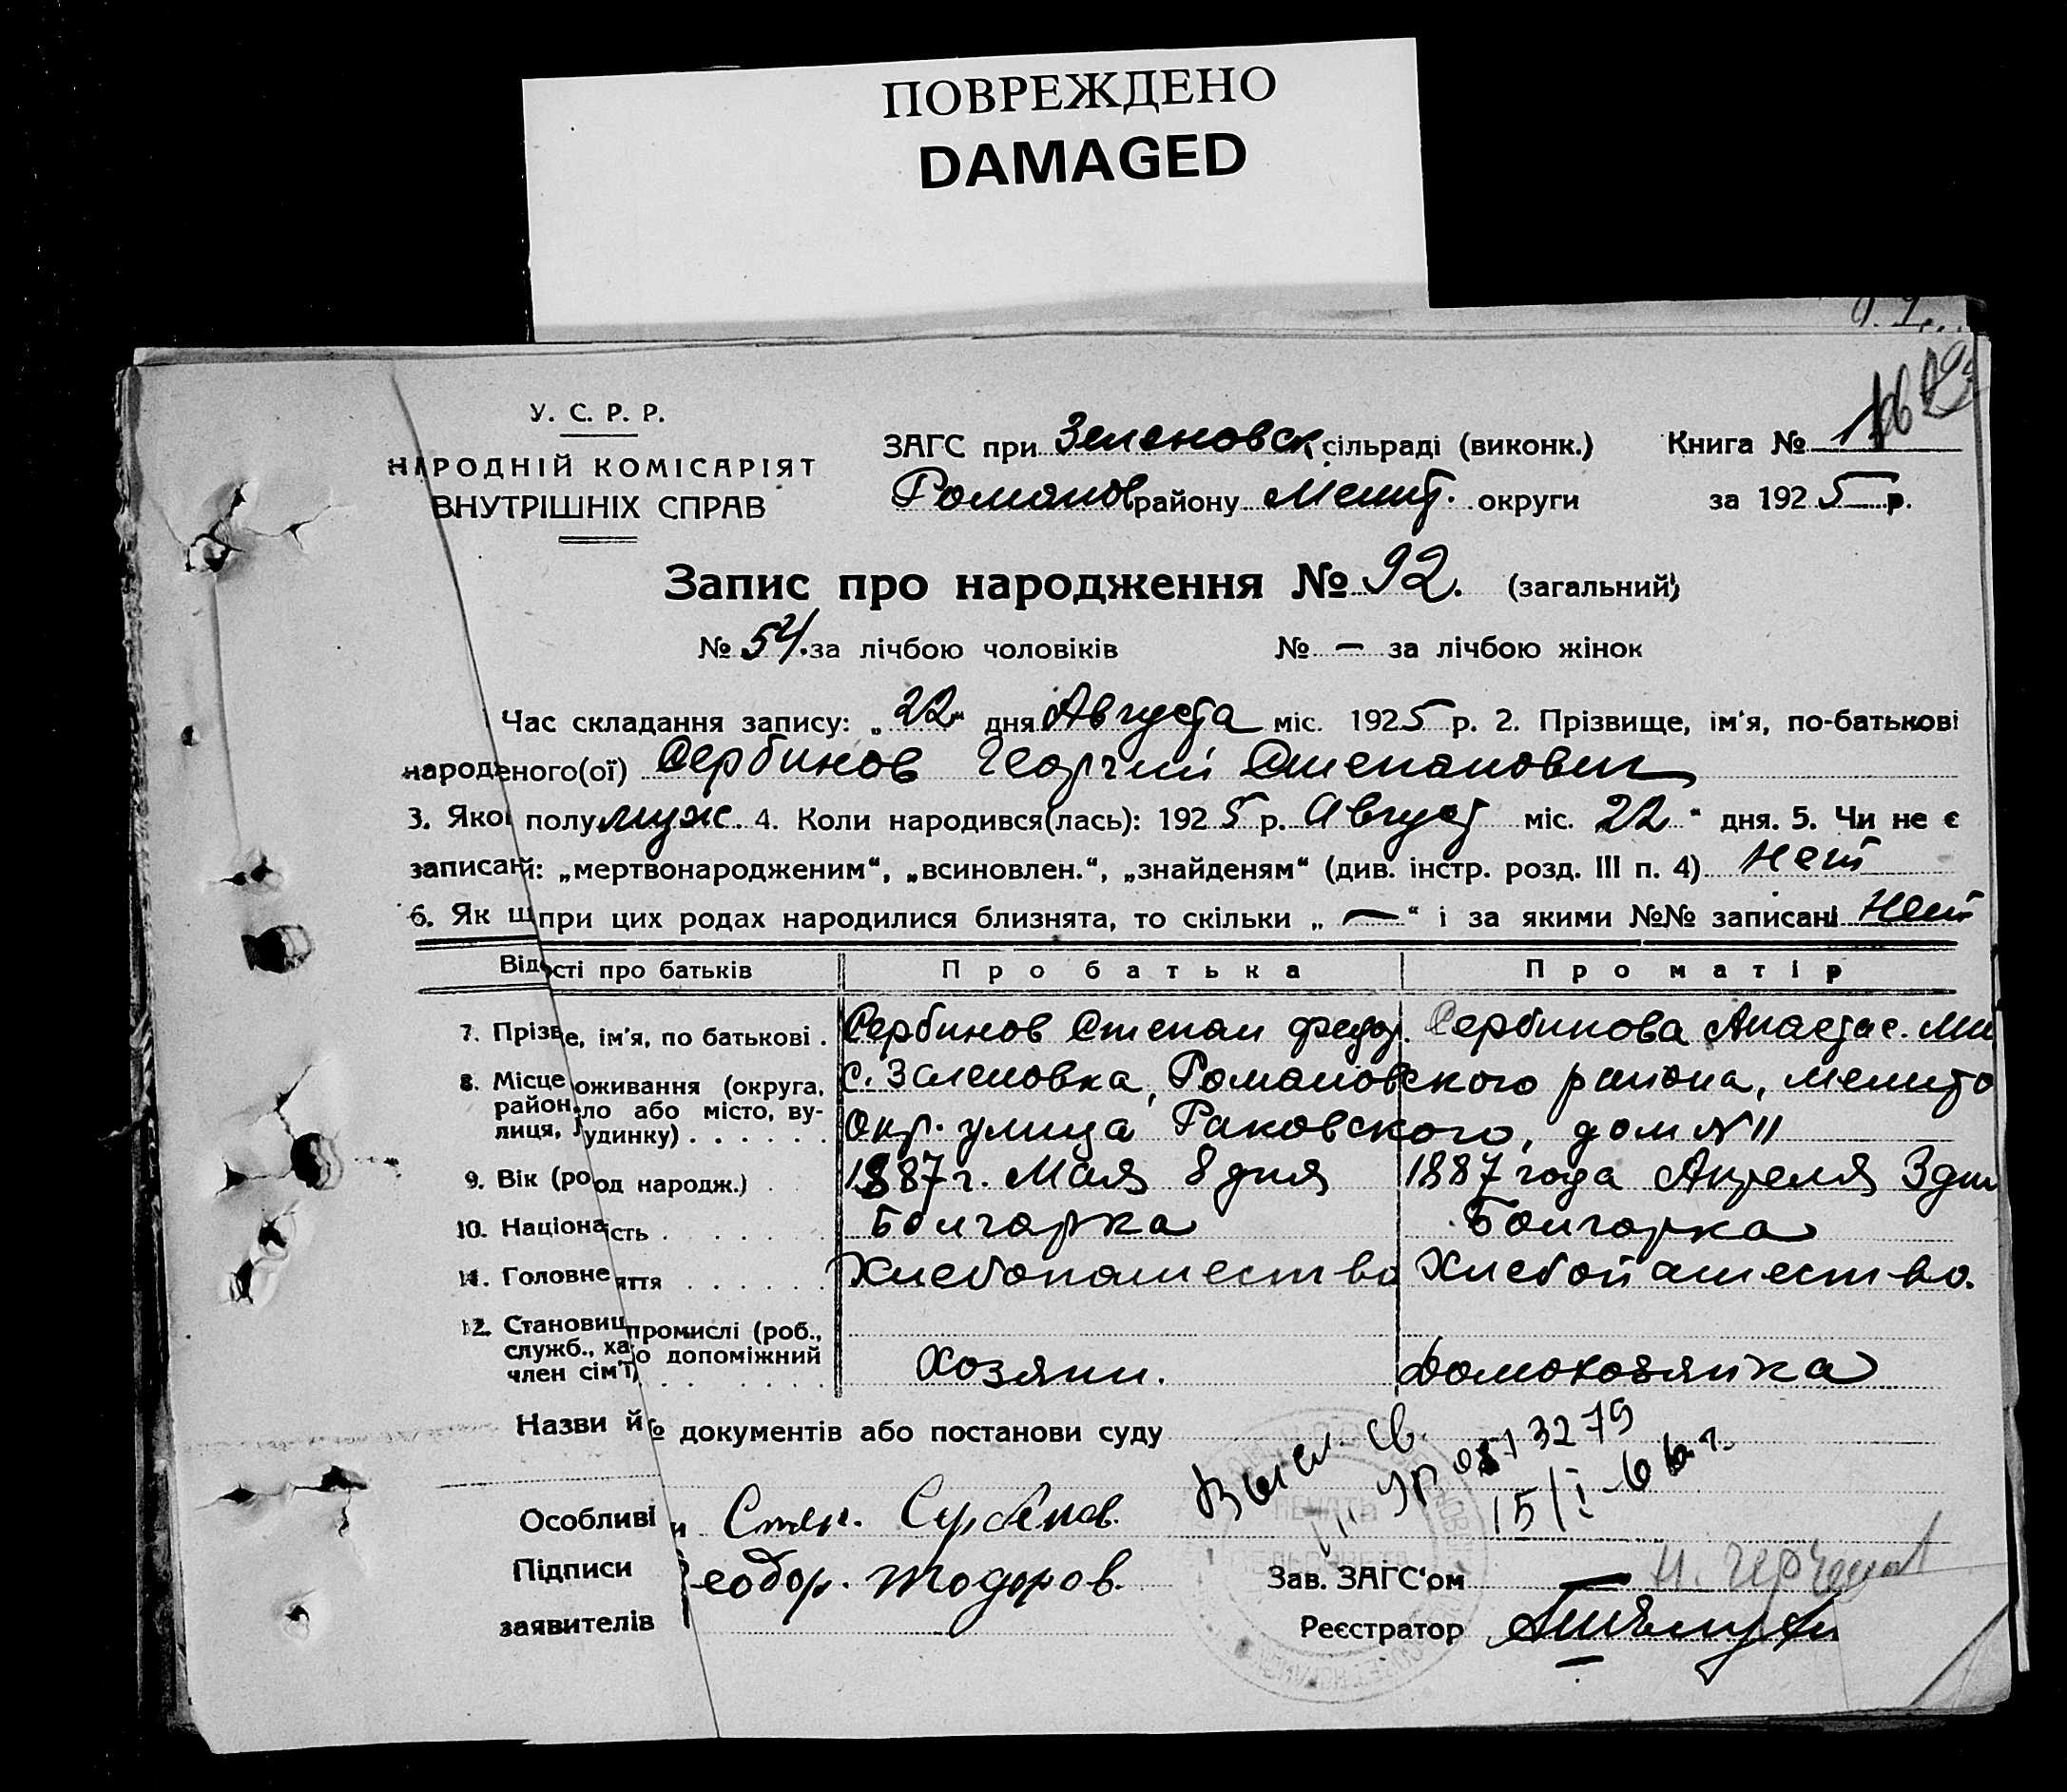 ПОВРЕЖДЕНО
DAMAGED
У. С. Р. Р.
НАРОДНІЙ КОМІСАРІЯТ
ВНУТРІШНІХ СПРАВ
ЗАГС при Зеленовск сільраді (виконк.) Книга № 1
Романов району Мелит. округи за 1925 р.
Запис про народження № 92. (загальний)
№ 54. за лічбою чоловіків № — за лічбою жінок
Час складання запису: „22" дня Августа міс. 1925 р. 2. Прізвище, ім'я, по-батькові
народеного(ої) Сербинов Георгий Степанович
3. Якої полу муж. 4. Коли народився(лась): 1925 р. Август міс. 22 " дня. 5. Чи не є
записаний: „мертвонародженим“, „всиновлен.“, „знайденям“ (див. інстр. розд. III п. 4) Нет
6. Як щ при цих родах народилися близнята, то скільки „ — “ і за якими №№ записані Нет
Відості про батьків Про батька Про матір
7. Прізве, ім'я, по батькові . Сербинов Степан Федор. Сербинова Анастас. Ми
8. Місце оживання (округа, с. Зеленовка, Романовского района, Мелито
район, ло або місто, ву-
лиця, удинку) . . . . . . Окр. улица Раковского, дом № 11
9. Вік (ро од народж.) . 1887 г. Мая 8 дня 1887 года Апреля 3 дня
10. Націона сть . . . . . . Болгарка Болгарка
11. Головне яття . . . . . Хлебопашество Хлебопашество.
12. Становищ промислі (роб.,
служб., ха о допоміжний
член сім'ї) . . . . . . Хозяин. Домохозяйка
Назви й № документів або постанови суду
Высл. св.
УР 0513279
15/I-66 г.
Особливі и Степ. Сербинов.
Підписи Феодор. Тодоров. Зав. ЗАГС'ом —
заявителів Реєстратор
ПЕЧАТЬ